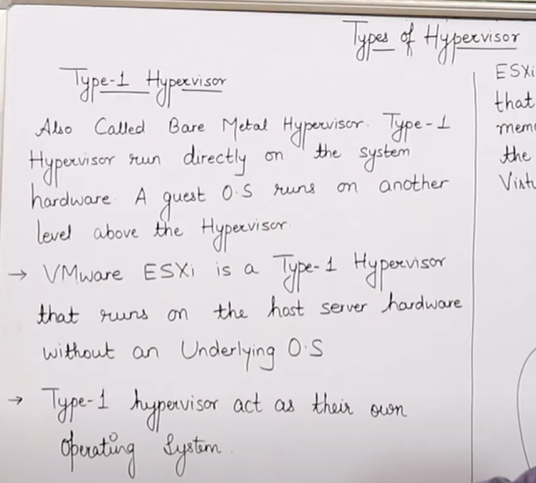 Types of Hypervisor
Type-1 Hypervisor
Also Called Bare Metal Hypervisor. Type-1
Hypervisor run directly on the system
hardware. A guest O.S runs on another
level above the Hypervisor
→ VMware ESXi is a Type-1 Hypervisor
that runs on the host server hardware
without an Underlying O.S
→ Type-1 hypervisor act as their own
Operating System.
ESXi
that
the